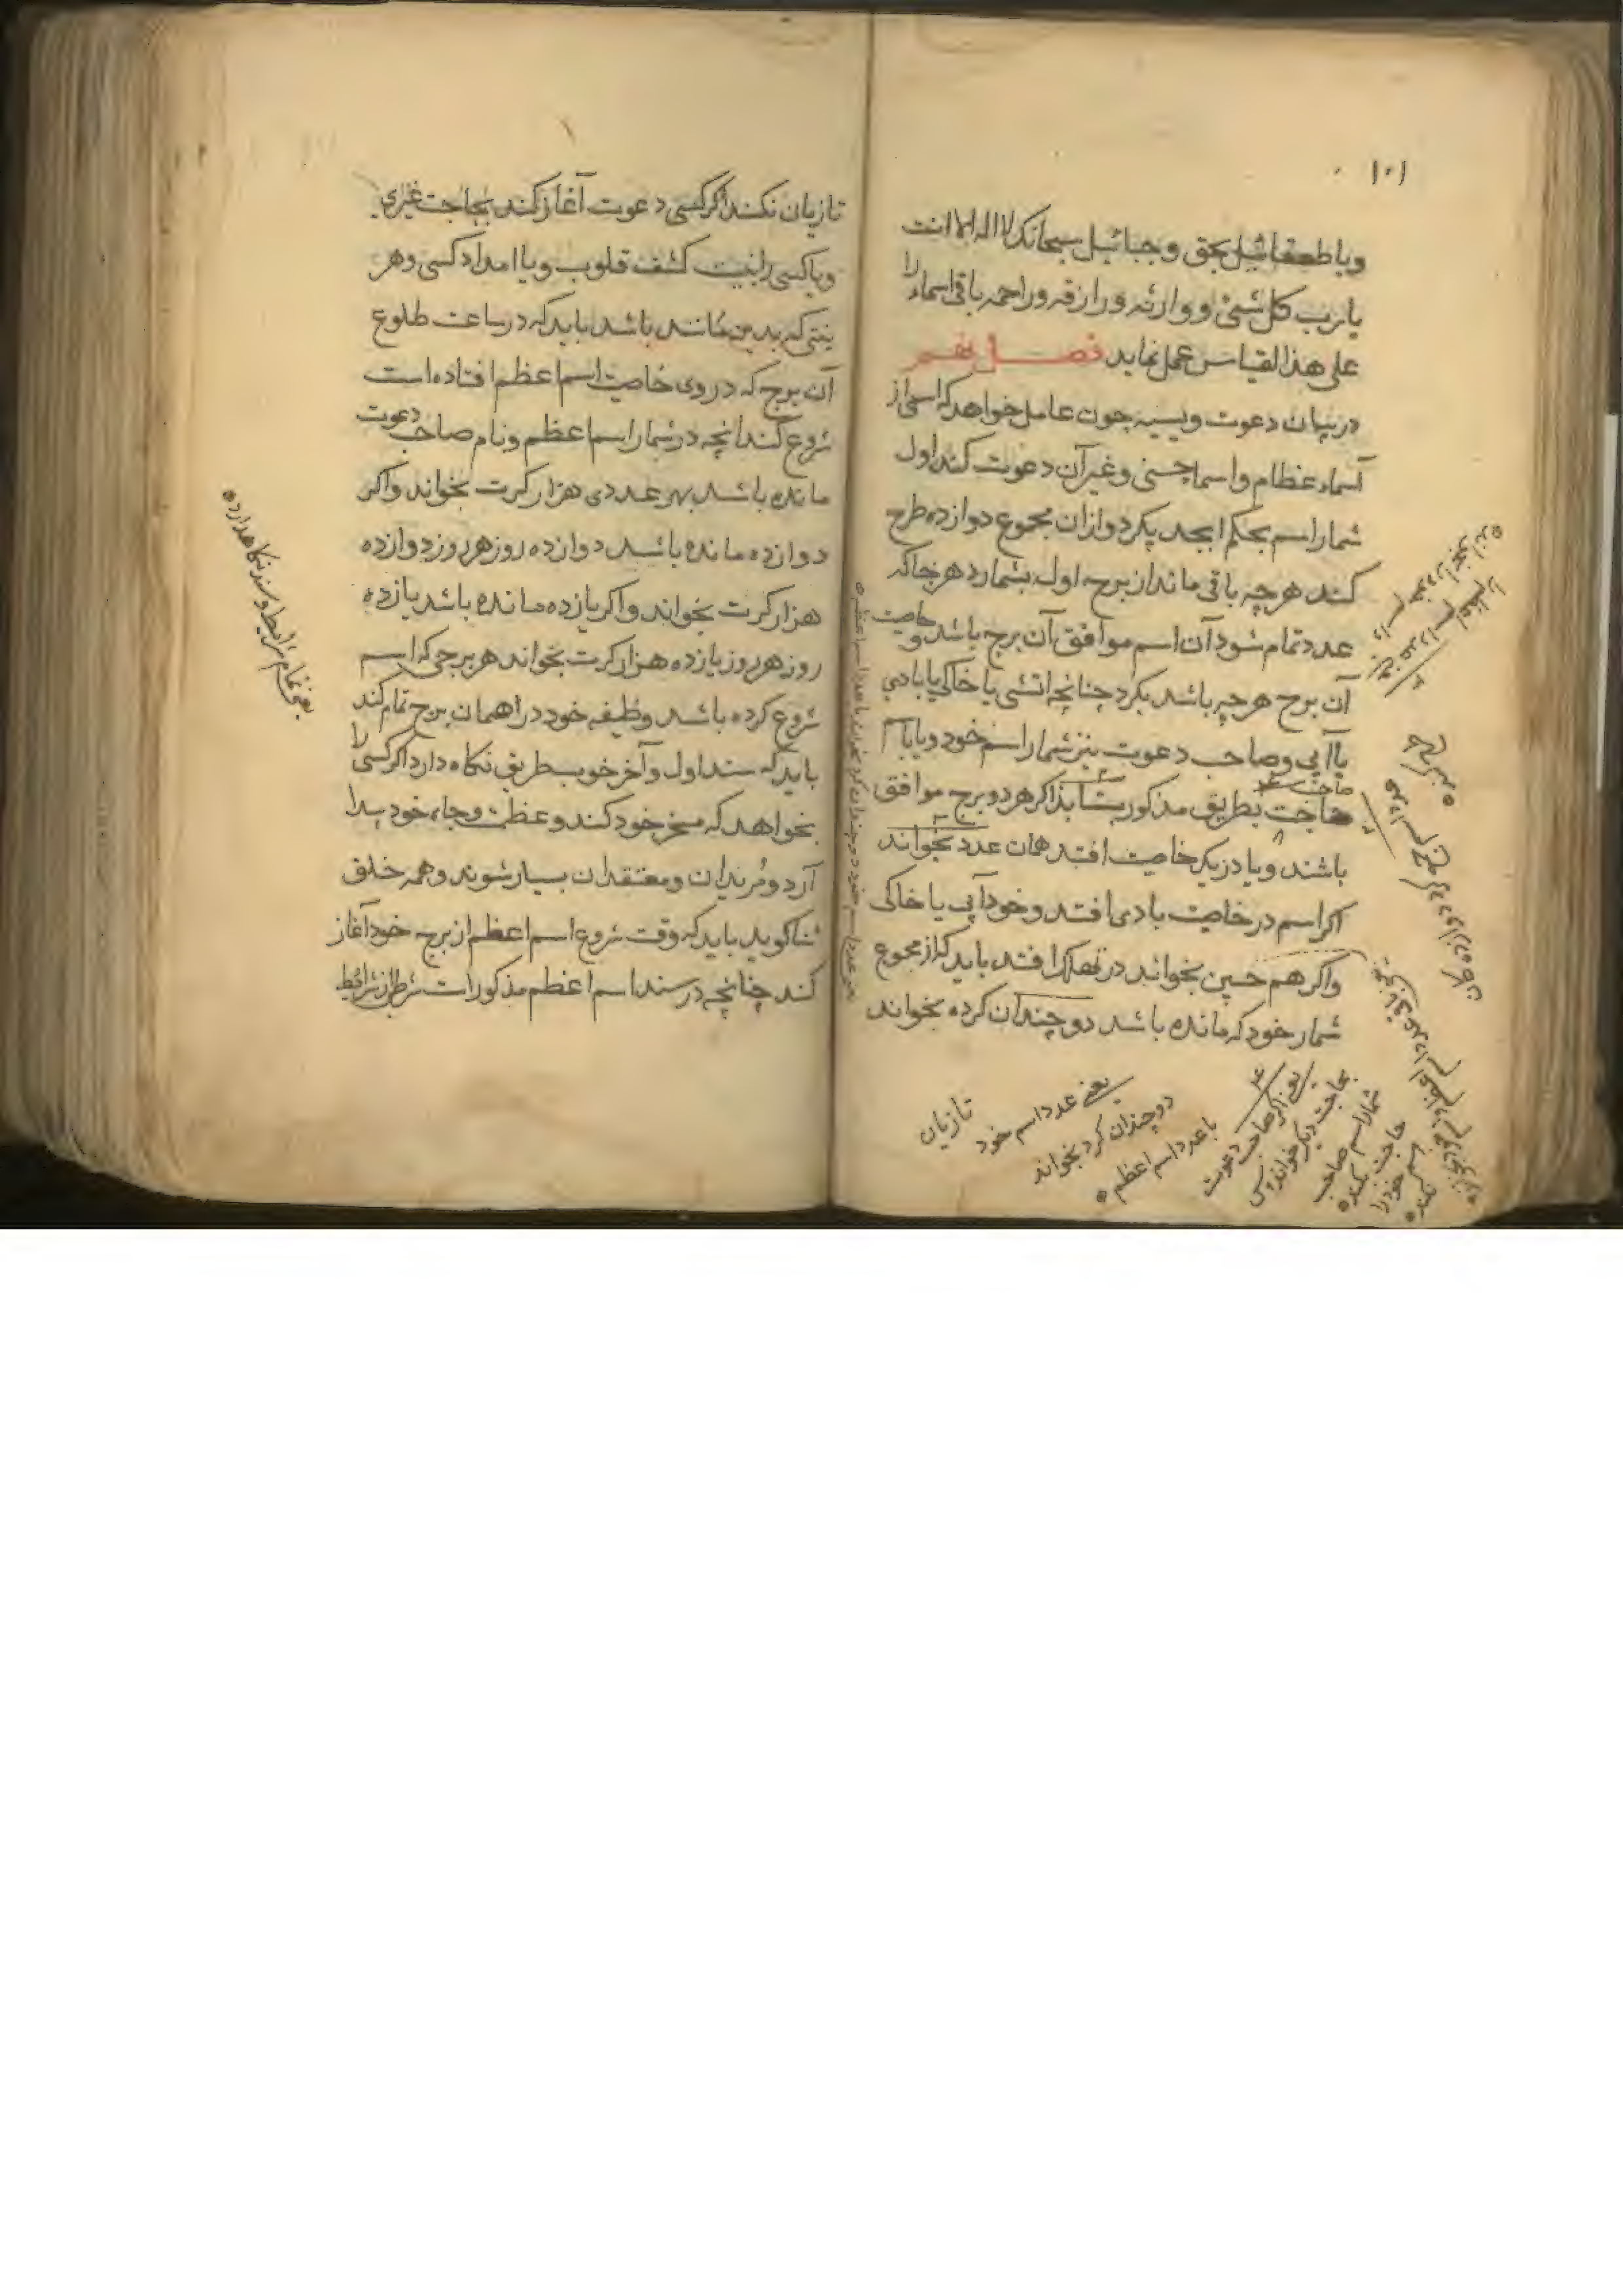 ۱۰۱
ویا طعقائیل بحق وجبائیل سبحانک لا اله الا انت
یا رب کل شئ و وارثه ورازقه وراحمه باقی اسماء را
علی هذا القیاس عمل نماید فصل نهم
در بیان دعوت چون عامل خواهد که اسمی از
اسماء عظام و اسماء حسنی وغیر آن دعوت کند اول
شمار اسم بحکم ابجد بکیرد و ازان مجموع دوازده طرح
کند هرچه باقی ماند از برج اول بشمارد هر جا که
عدد تمام شود آن اسم موافق آن برج باشد و خاصیت
آن برج هرچه باشد بکیرد چنانچه اتشی یا خاکی یا بادی
یا آبی وصاحب دعوت نیز شمار اسم خود ویا بنام
صاحب
حاجت بطریق مذکور بشمارد اکر هر دو برج موافق
باشند ویا در یک خاصیت افتد همان عدد بخواند
اکر اسم در خاصیت بادی افتد و خود آبی یا خاکی
واکر همچنین بخواند در تهلکه افتد باید که از مجموع
شمار خود که مانده باشد دو چندان کرده بخواند
تازیان
یعنی عدد اسم خود
دو چندان کرد بخواند
با عدد اسم اعظم
یعنی اکر صاحب دعوت
بحاجت دیکر خواند پس
شمار اسم صاحب
حاجت بکند
اسم خود را
نکند
تا زیان نکند اکر کسی دعوت آغاز کند بحاجت غیری
ویا کسی را نیت کشف قلوب ویا امداد کسی وهر
نیتی که بدین مانند باشد باید که در ساعت طلوع
آن برج که در وی خاصیت اسم اعظم افتاده است
شروع کند انچه در شمار اسم اعظم و نام صاحب دعوت
مانده باشد بهر عددی هزار کرت بخواند واکر
دوازده مانده باشد دوازده روز هر روز دوازده
هزار کرت بخواند واکر یازده مانده باشد یازده
روز هر روز یازده هزار کرت بخواند هر برجی که اسم
شروع کرده باشد وظیفه خود در همان برج تمام کند
باید که سند اول و آخر خوب طریق نکاه دارد اکر کسی را
بخواهد که مسخر خود کند وعظمت وجاه خود پیدا
آرد و مریدان ومعتقدان بسیار شوند وهمه خلق
ثنا کوید باید که وقت شروع اسم اعظم از برج خود آغاز
کند چنانچه در سند اسم اعظم مذکور است شرط از شرائط
یعنی تمام شرائط وسند نکاهدارد